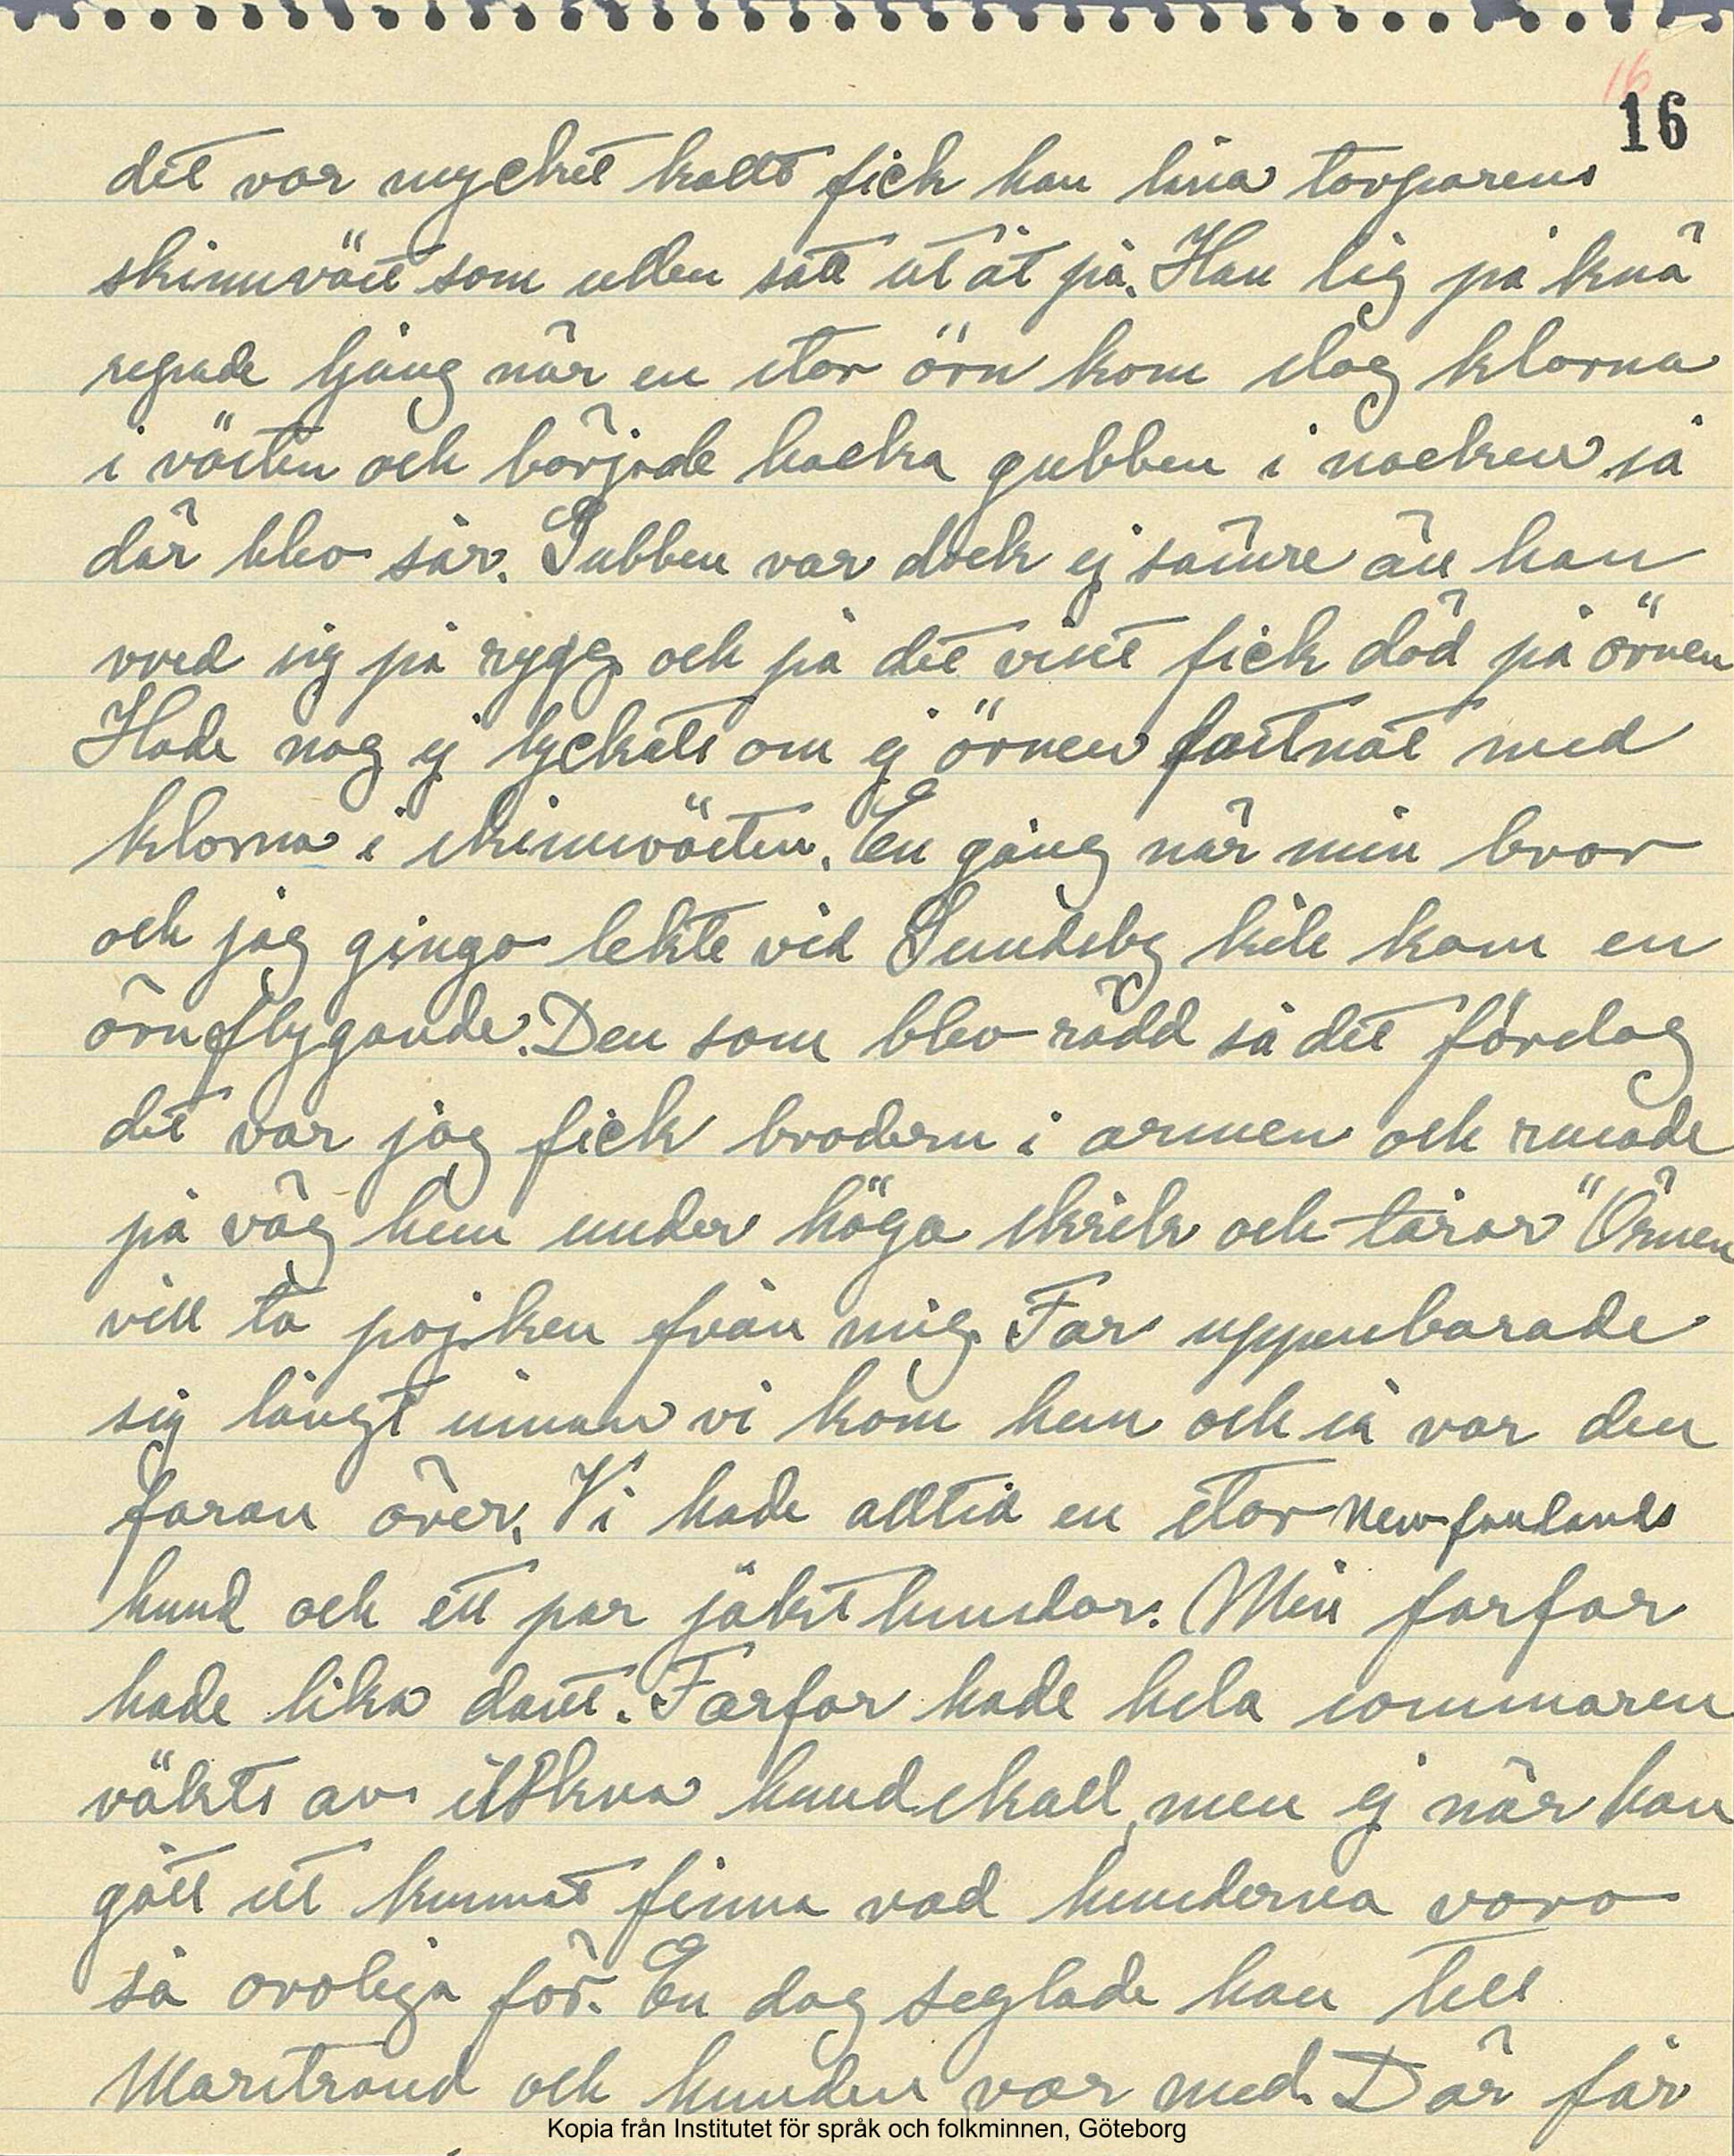 16
16
det var mycket kallt fick han låna torparens
skinnväst som ullen satt utåt på. Han låg på knä
repade ljung när en stor örn kom slog klorna
i västen och började hacka gubben i nacken så
där blev sår. Gubben var dock ej sämre än han
vred sig på rygg och på det viset fick död på örnen
Hade nog ej lyckats om ej örnen fastnat med
klorna i skinnvästen. En gång när min bror
och jag gingo lekte vid Sundsby kile kom en
örn flygande. Den som blev rädd så det förslog
det var jag fick brodern i armen och rusade
på väg hem under höga skrik och tårar "Örnen
vill ta pojken från mig. Far uppenbarade
sig långt innan vi kom hem och så var den
faran över. Vi hade alltid en stor Newfanlands
hund och ett par jakt hundar. Min farfar
hade lika dant. Farfar hade hela sommaren
väkts av ilskna hundskall, men ej när han
gått ut kunnat finna vad hunderna voro
så oroliga för. En dag seglade han till
Marstrand och hunden var med. Där får
Kopia från Institutet för språk och folkminnen, Göteborg